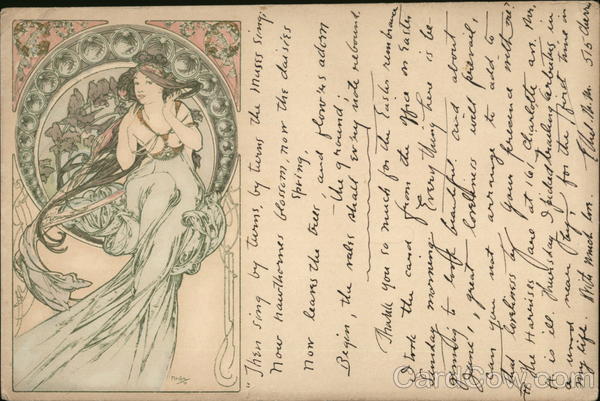 "Then sing by turns, by turns the Muses sing;
Now hawthornes blossom, now the daisies
spring,
Now leaves the trees, and flowers adorn
the ground;
Begin, the vales shall every note rebound.
Thank you so much for the Easter remembrance
I took the card from the office on Easter
Sunday morning. Every thing here is be-
ginning to look beautiful and about
June, great loveliness will prevail,
can you not arrange to add to
that loveliness by your presence with me?
The Harrises are at 161 Charlotte av. Mrs.
H is ill. Thursday I picked trailing arbutus in
a wood near for the first time in
my life. With much love. Ethel M. M. 515
Mucha
CardCow.com